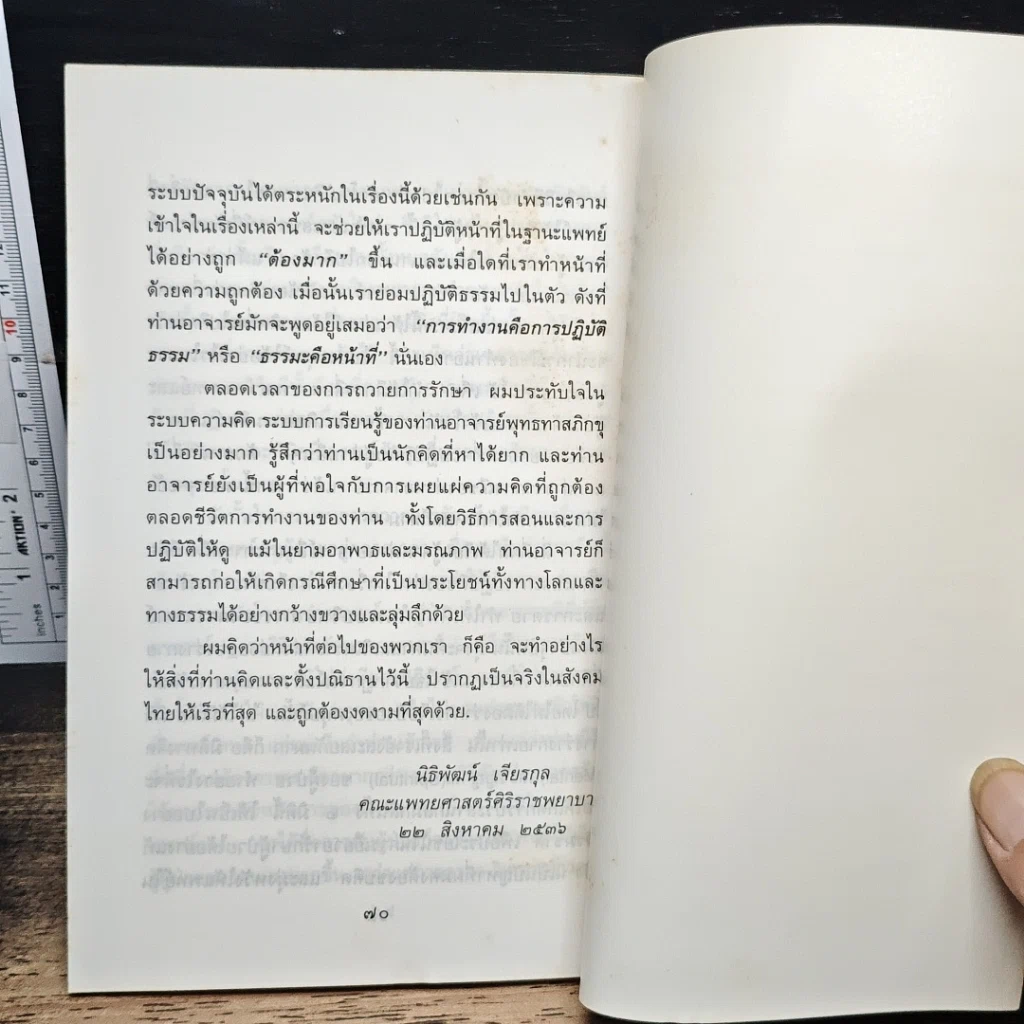 ระบบปัจจุบันได้ตระหนักในเรื่องนี้ด้วยเช่นกัน เพราะความ
เข้าใจในเรื่องเหล่านี้ จะช่วยให้เราปฏิบัติหน้าที่ในฐานะแพทย์
ได้อย่างถูก “ต้องมาก” ขึ้น และเมื่อใดที่เราทำหน้าที่
ด้วยความถูกต้อง เมื่อนั้นเราย่อมปฏิบัติธรรมไปในตัว ดังที่
ท่านอาจารย์มักจะพูดอยู่เสมอว่า “การทำงานคือการปฏิบัติ
ธรรม” หรือ “ธรรมะคือหน้าที่” นั่นเอง
ตลอดเวลาของการถวายการรักษา ผมประทับใจใน
ระบบความคิด ระบบการเรียนรู้ของท่านอาจารย์พุทธทาสภิกขุ
เป็นอย่างมาก รู้สึกว่าท่านเป็นนักคิดที่หาได้ยาก และท่าน
อาจารย์ยังเป็นผู้ที่พอใจกับการเผยแผ่ความคิดที่ถูกต้อง
ตลอดชีวิตการทำงานของท่าน ทั้งโดยวิธีการสอนและการ
ปฏิบัติให้ดู แม้ในยามอาพาธและมรณภาพ ท่านอาจารย์ก็
สามารถก่อให้เกิดกรณีศึกษาที่เป็นประโยชน์ทั้งทางโลกและ
ทางธรรมได้อย่างกว้างขวางและลุ่มลึกด้วย
ผมคิดว่าหน้าที่ต่อไปของพวกเรา ก็คือ จะทำอย่างไร
ให้สิ่งที่ท่านคิดและตั้งปณิธานไว้นี้ ปรากฏเป็นจริงในสังคม
ไทยให้เร็วที่สุด และถูกต้องงดงามที่สุดด้วย.
นิธิพัฒน์ เจียรกุล
คณะแพทยศาสตร์ศิริราชพยาบา
๒๒ สิงหาคม ๒๕๓๖
๗๐
11
10
9
8
7
6
5
4
3
2
1
2
1
AKTION
inches